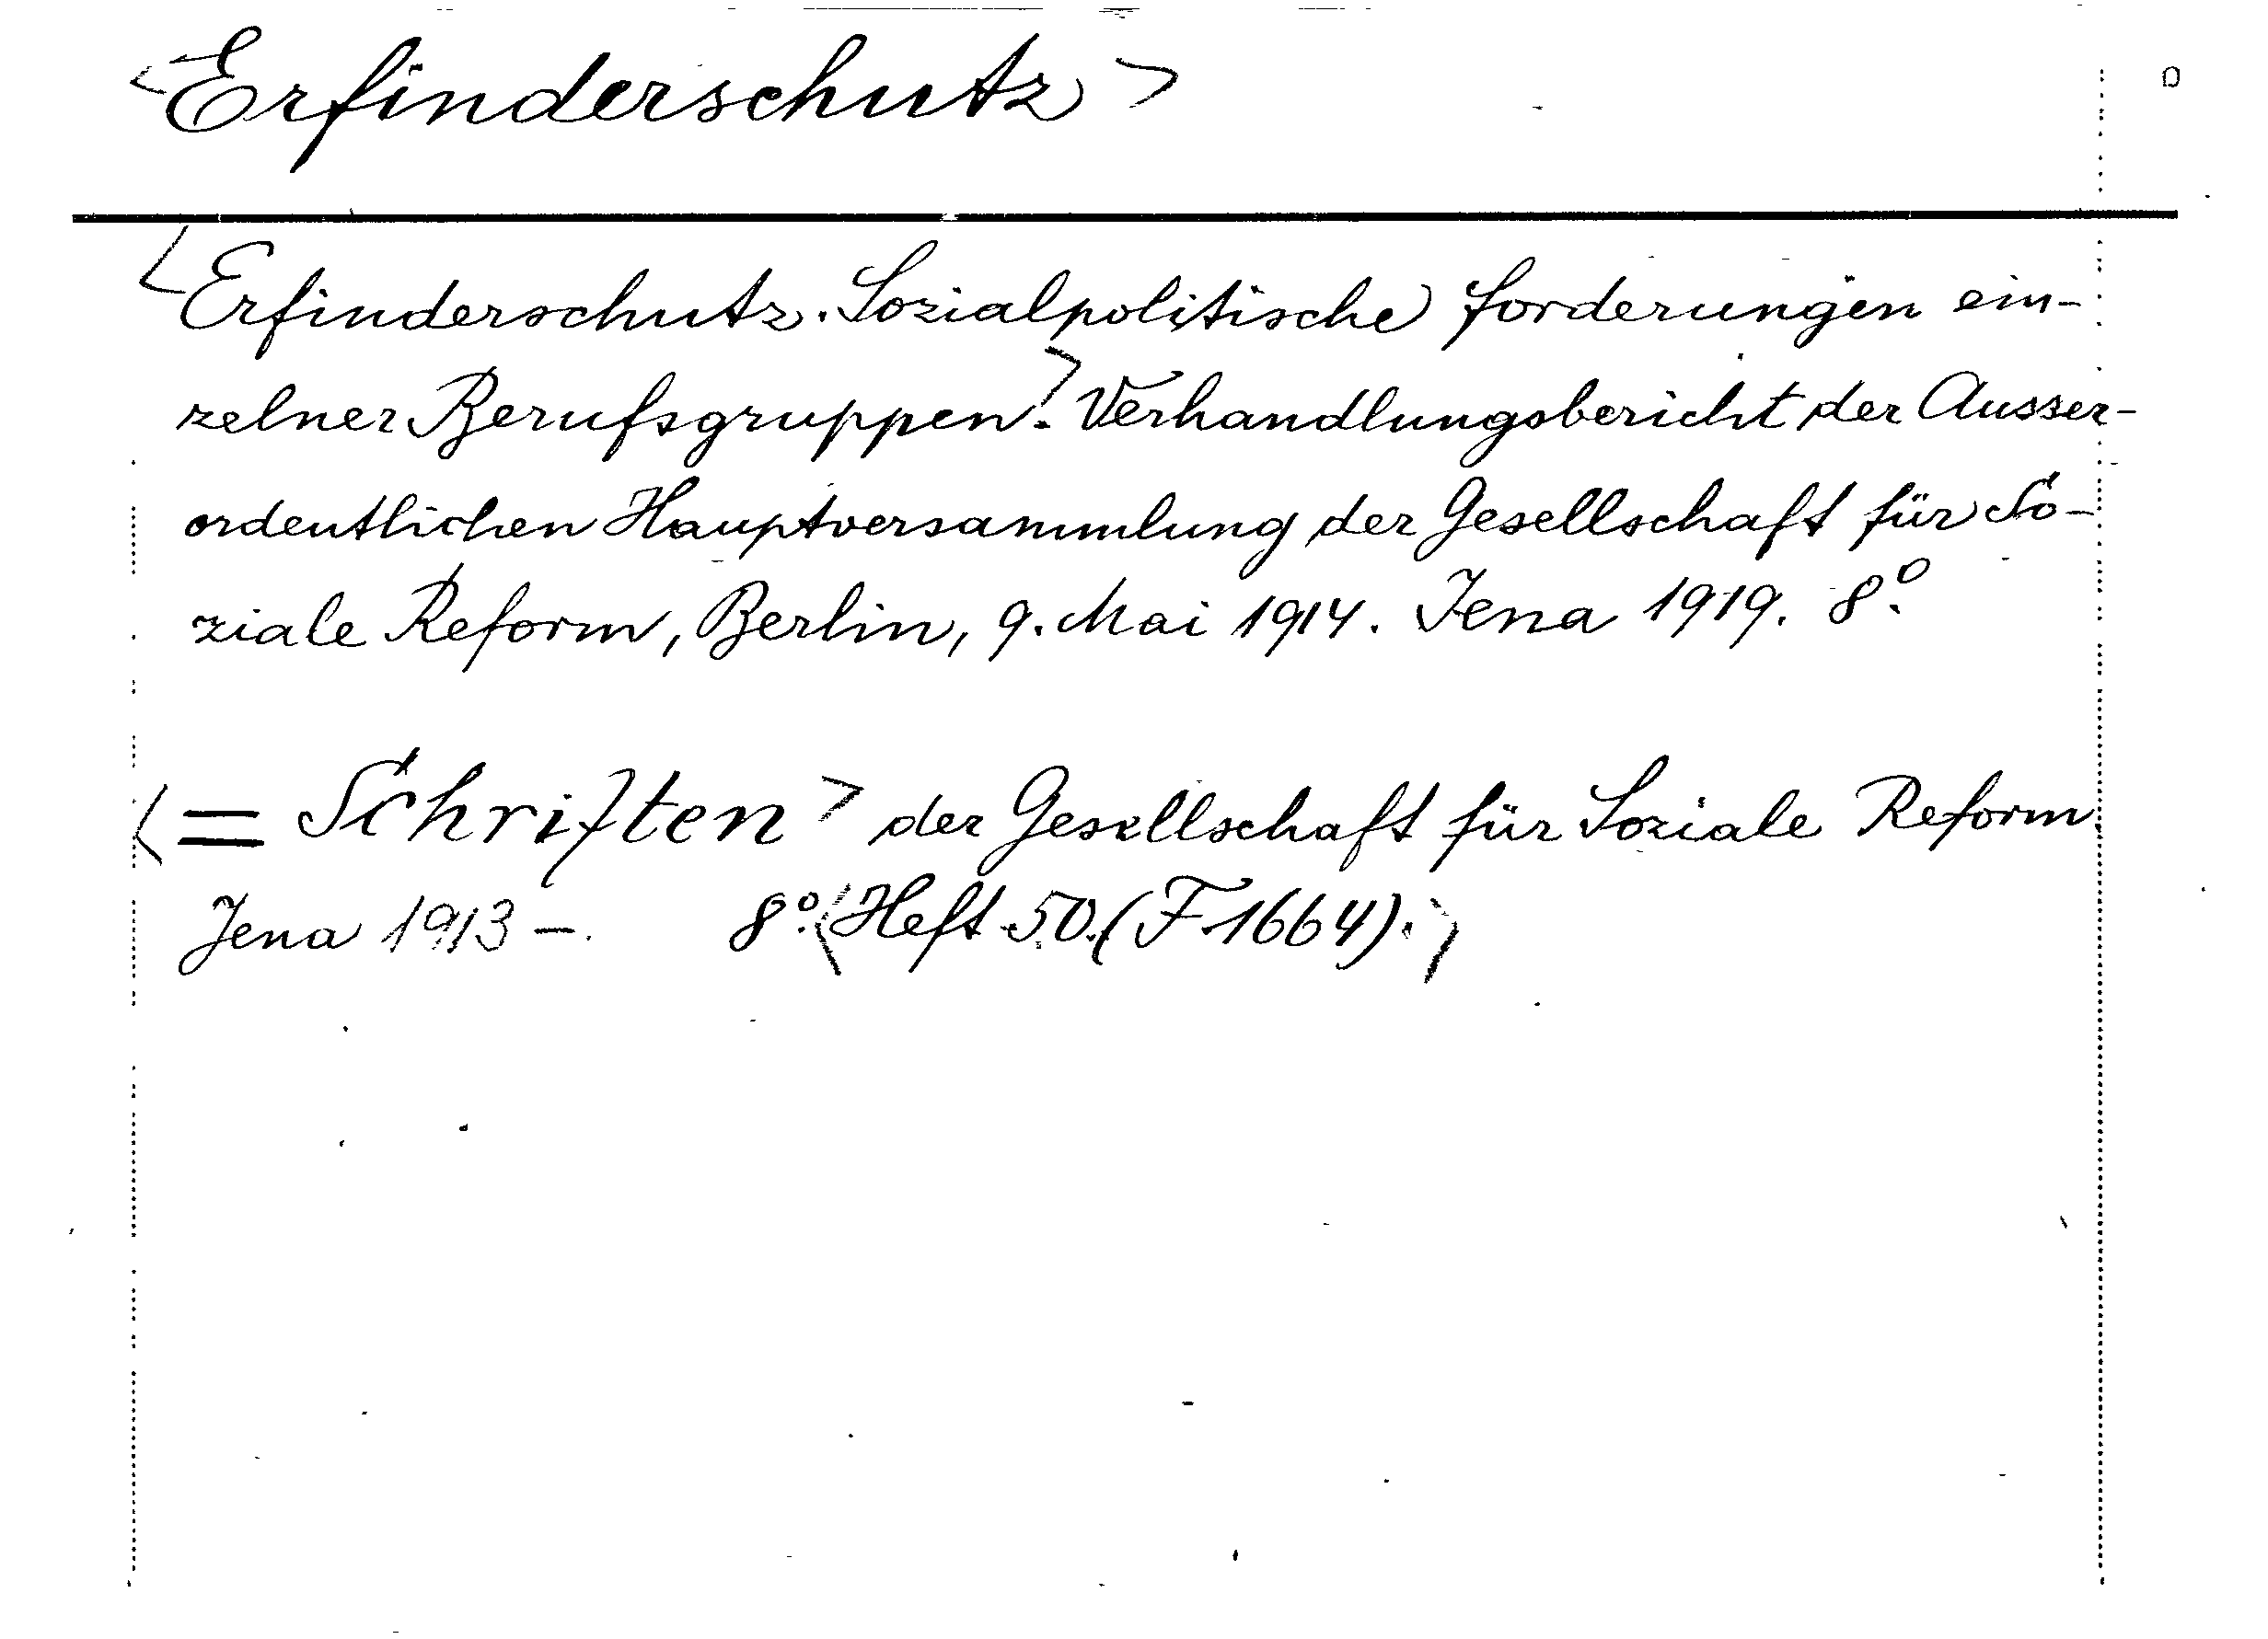 <Erfinderschutz>
<Erfinderschutz. Sozialpolitische Forderungen ein-
zelner Berufsgruppen.> Verhandlungsbericht der Ausser-
ordentlichen Hauptversammlung der Gesellschaft für So-
ziale Reform, Berlin, 9. Mai 1914. Jena 1919. 8º.
<= Schriften> der Gesellschaft für Soziale Reform.
Jena 1913 –. 8º. <Heft 50. (F 1664).>